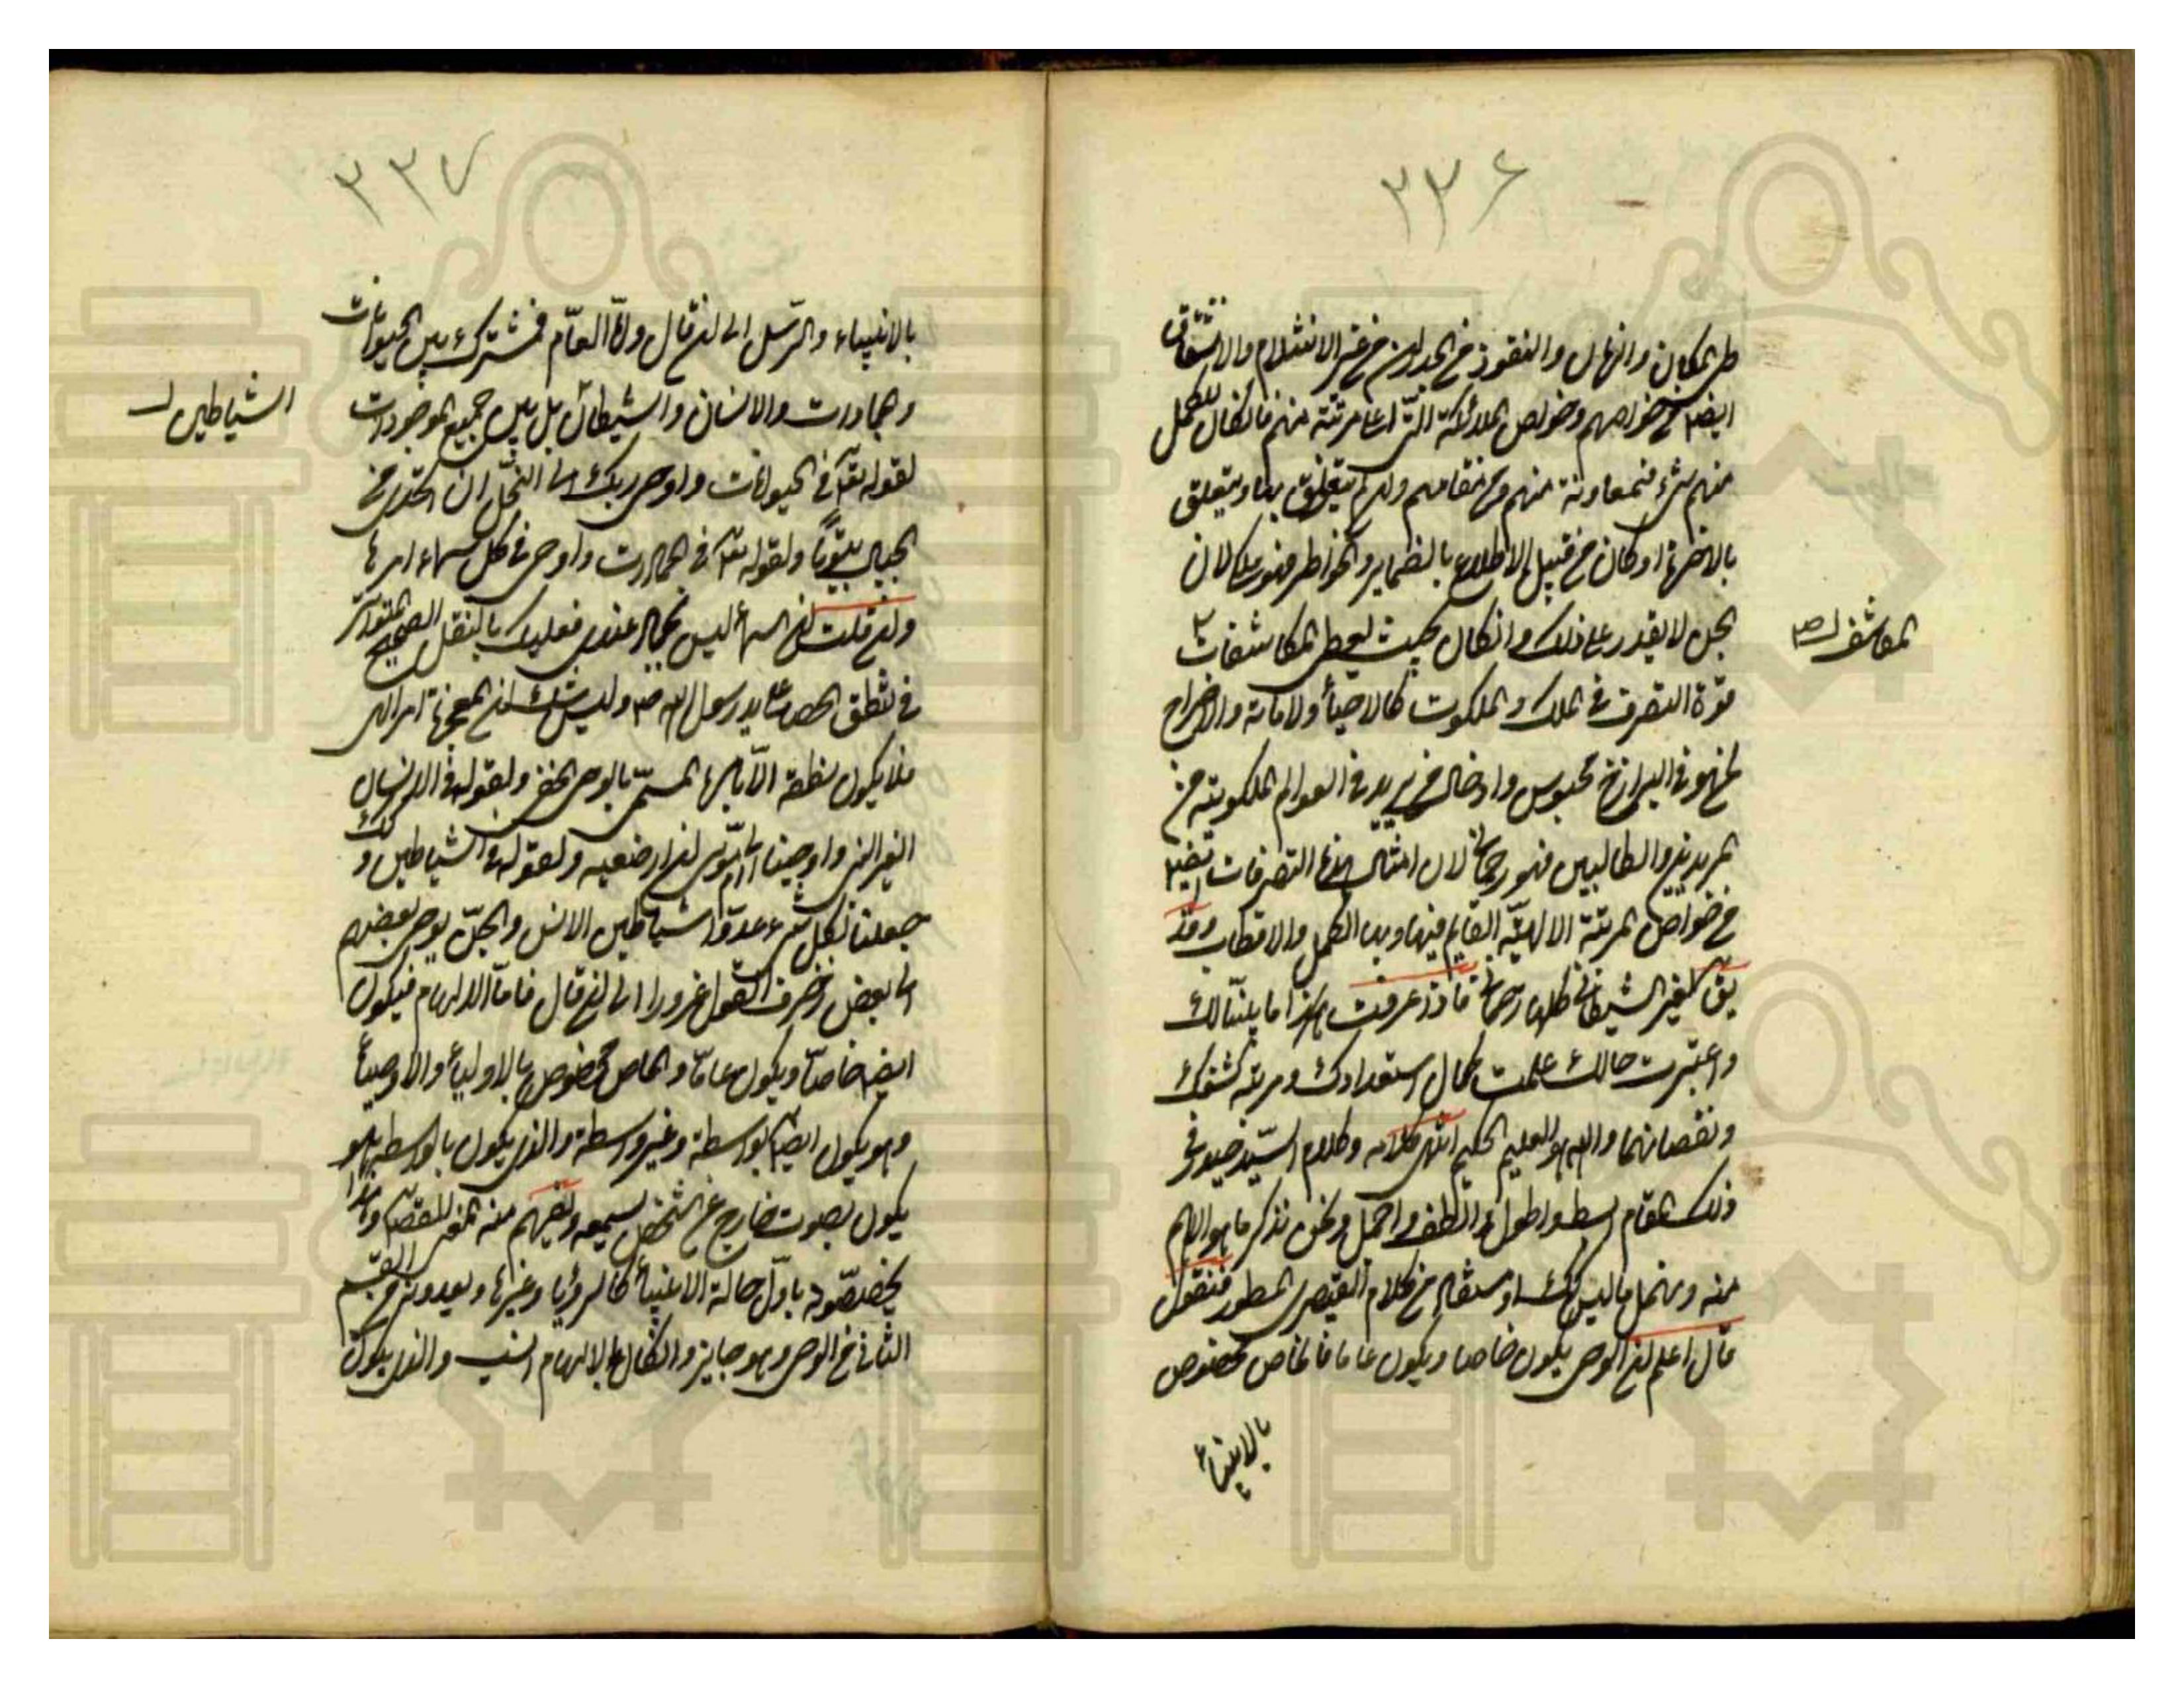 ٢٣۶
طى المكان والزمان والنفوذ فى الجدران من غير الانثلام والانشقاق
ايضا من خواصهم وخواص الملائكة التى اعلى مرتبة منهم فانكان للكمل
منهم شىء فبمعاونة منهم ومن مقامهم وان لم يتعلق بها ويتعلق
بالاخرة اوكان من قبيل الاطلاع بالضماير والخواطر فهو ملكى لان
الجن لا يقدر على ذلك وانكان بحيث يعطى المكاشفات
قوة التصرف فى الملك والملكوت كالاحياء والاماتة والاخراج
لمن هو فى البرازخ محبوس وادخال من يريد فى العوالم الملكوتية من
المريدين والطالبين فهو رحمانى لان امثال هذه التصرفات ايضا
من خواص المرتبة الالهية القايم فيها وبها الكمل والاقطاب وقد
يق لغير الشيطانى كلها رحمانى فاذا عرفت هذا ما بينا لك
واعتبرت حالك علمت كمال استعدادك ومرتبة كشفك
ونقصانهما والله هو العليم الحكيم انتهى كلامه وكلام السيد حيدر فى
ذلك المقام ابسط واطول والطف واجمل ونحن نذكر ما هو الاهم
منه ونهمل ما ليس كك او مستفاد من كلام القيصرى المسطور فنقول
قال اعلم ان الوحى يكون خاصا ويكون عاما فالخاص مخصوص
بالانبياء
المكاشف ل ص
٢٣٧
بالانبياء والرسل الى ان قال واما العام فمشترك بين الحيوانات
والجمادات والانسان والشيطان بل بين جميع الموجودات
لقوله تعا فى الحيوانات واوحى ربك الى النحل ان اتخذى من
الجبال بيوتا ولقوله تعا فى الجمادات واوحى فى كل سماء امرها
وان قلت ان السماء ليس بجماد عندى فعليك بالنقل الصحيح المتواتر
فى نطق الحصا على يد رسول الله ص وليس شك ان المعجزة امر الهى
فلا يكون نطقه الا بامره المسمى بالوحى الخفى ولقوله فى الانسان
الغير النبى واوحينا الى ام موسى ان ارضعيه ولقوله فى الشياطين و
كك
جعلنا لكل شىء عدوا شياطين الانس والجن يوحى بعضهم
الى بعض زخرف القول غرورا الى ان قال فاما الالهام فيكون
ايضا خاصا ويكون عاما والخاص مخصوص بالاولياء والاوصياء
وهو يكون ايضا بواسطة وغير واسطة والذى يكون بالواسطة هو
يكون بصوت خارج عن الشخص يسمعه ويفهم منه المعنى المقصود وهذا
يخصصونه باول حالة الانبياء كالرؤيا وغيرها ويعدونه من القسم
الثانى من الوحى وهو جايز وانكان بالالهام انسب والذى يكون
الشياطين ل